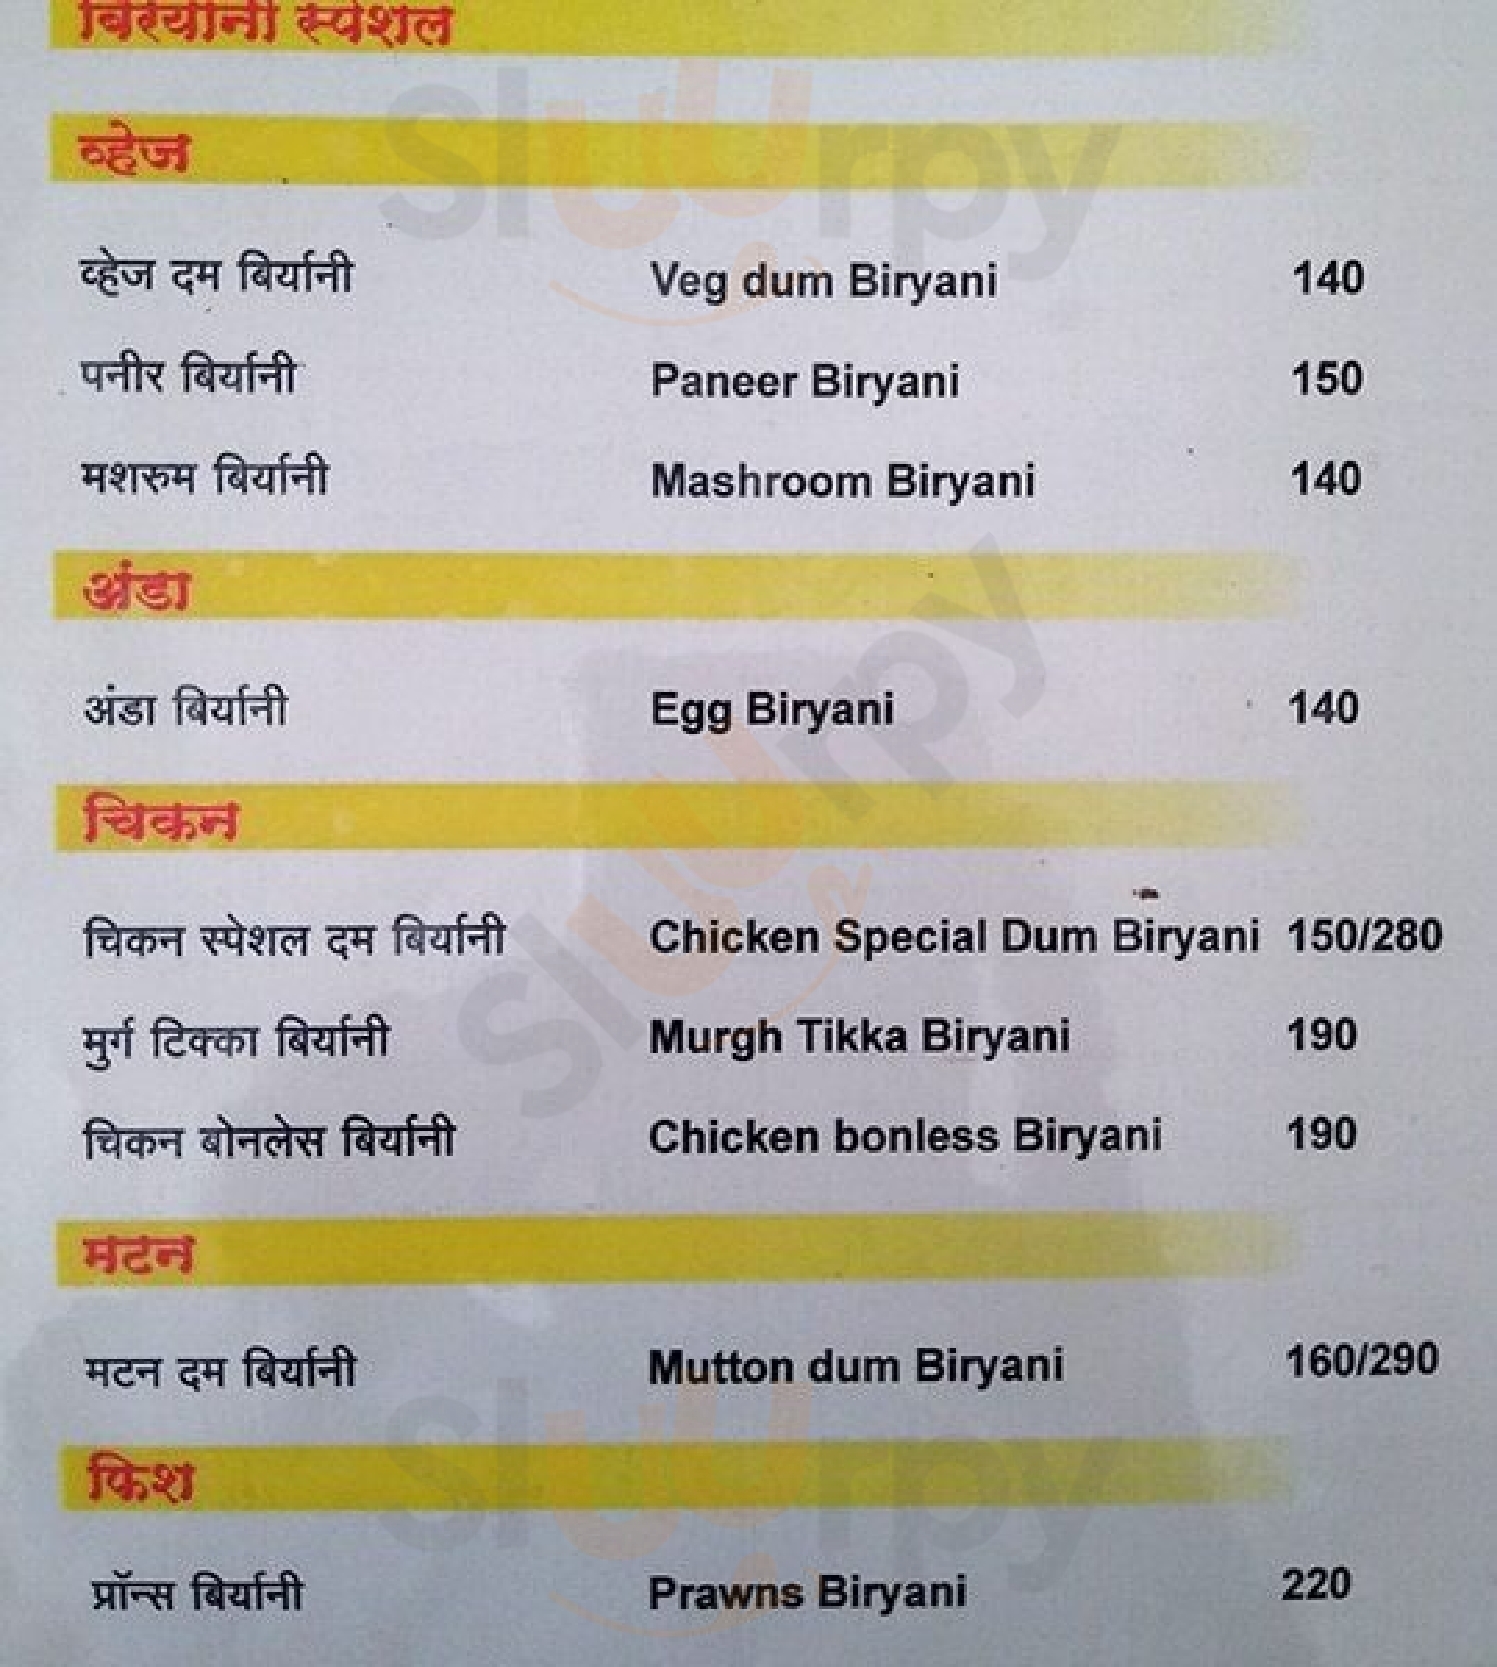 बिरयानी स्पेशल
व्हेज
व्हेज दम बिर्यानी Veg dum Biryani 140
पनीर बिर्यानी Paneer Biryani 150
मशरुम बिर्यानी Mashroom Biryani 140
अंडा
अंडा बिर्यानी Egg Biryani 140
चिकन
चिकन स्पेशल दम बिर्यानी Chicken Special Dum Biryani 150/280
मुर्ग टिक्का बिर्यानी Murgh Tikka Biryani 190
चिकन बोनलेस बिर्यानी Chicken bonless Biryani 190
मटन
मटन दम बिर्यानी Mutton dum Biryani 160/290
फिश
प्रॉन्स बिर्यानी Prawns Biryani 220
Sluurpy
Sluurpy
Sluurpy